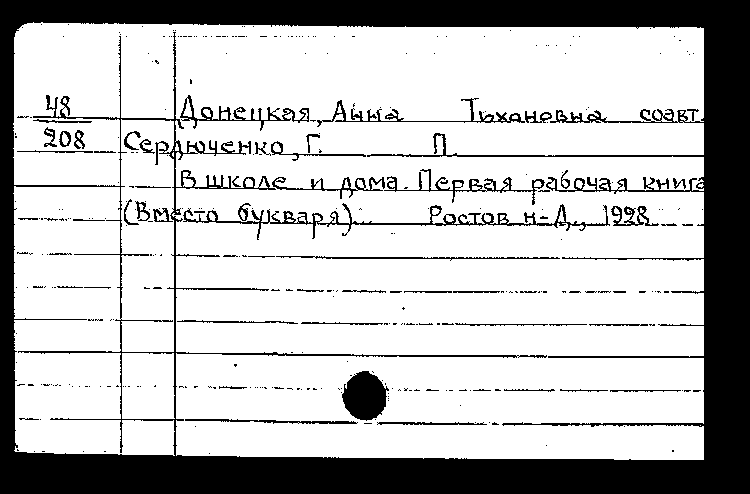 48
208
Донецкая, Анна Тихановна соавт.
Сердюченко, Г. П.
В школе и дома. Первая рабочая книга
(Вместо букваря)... Ростов н-Д., 1928